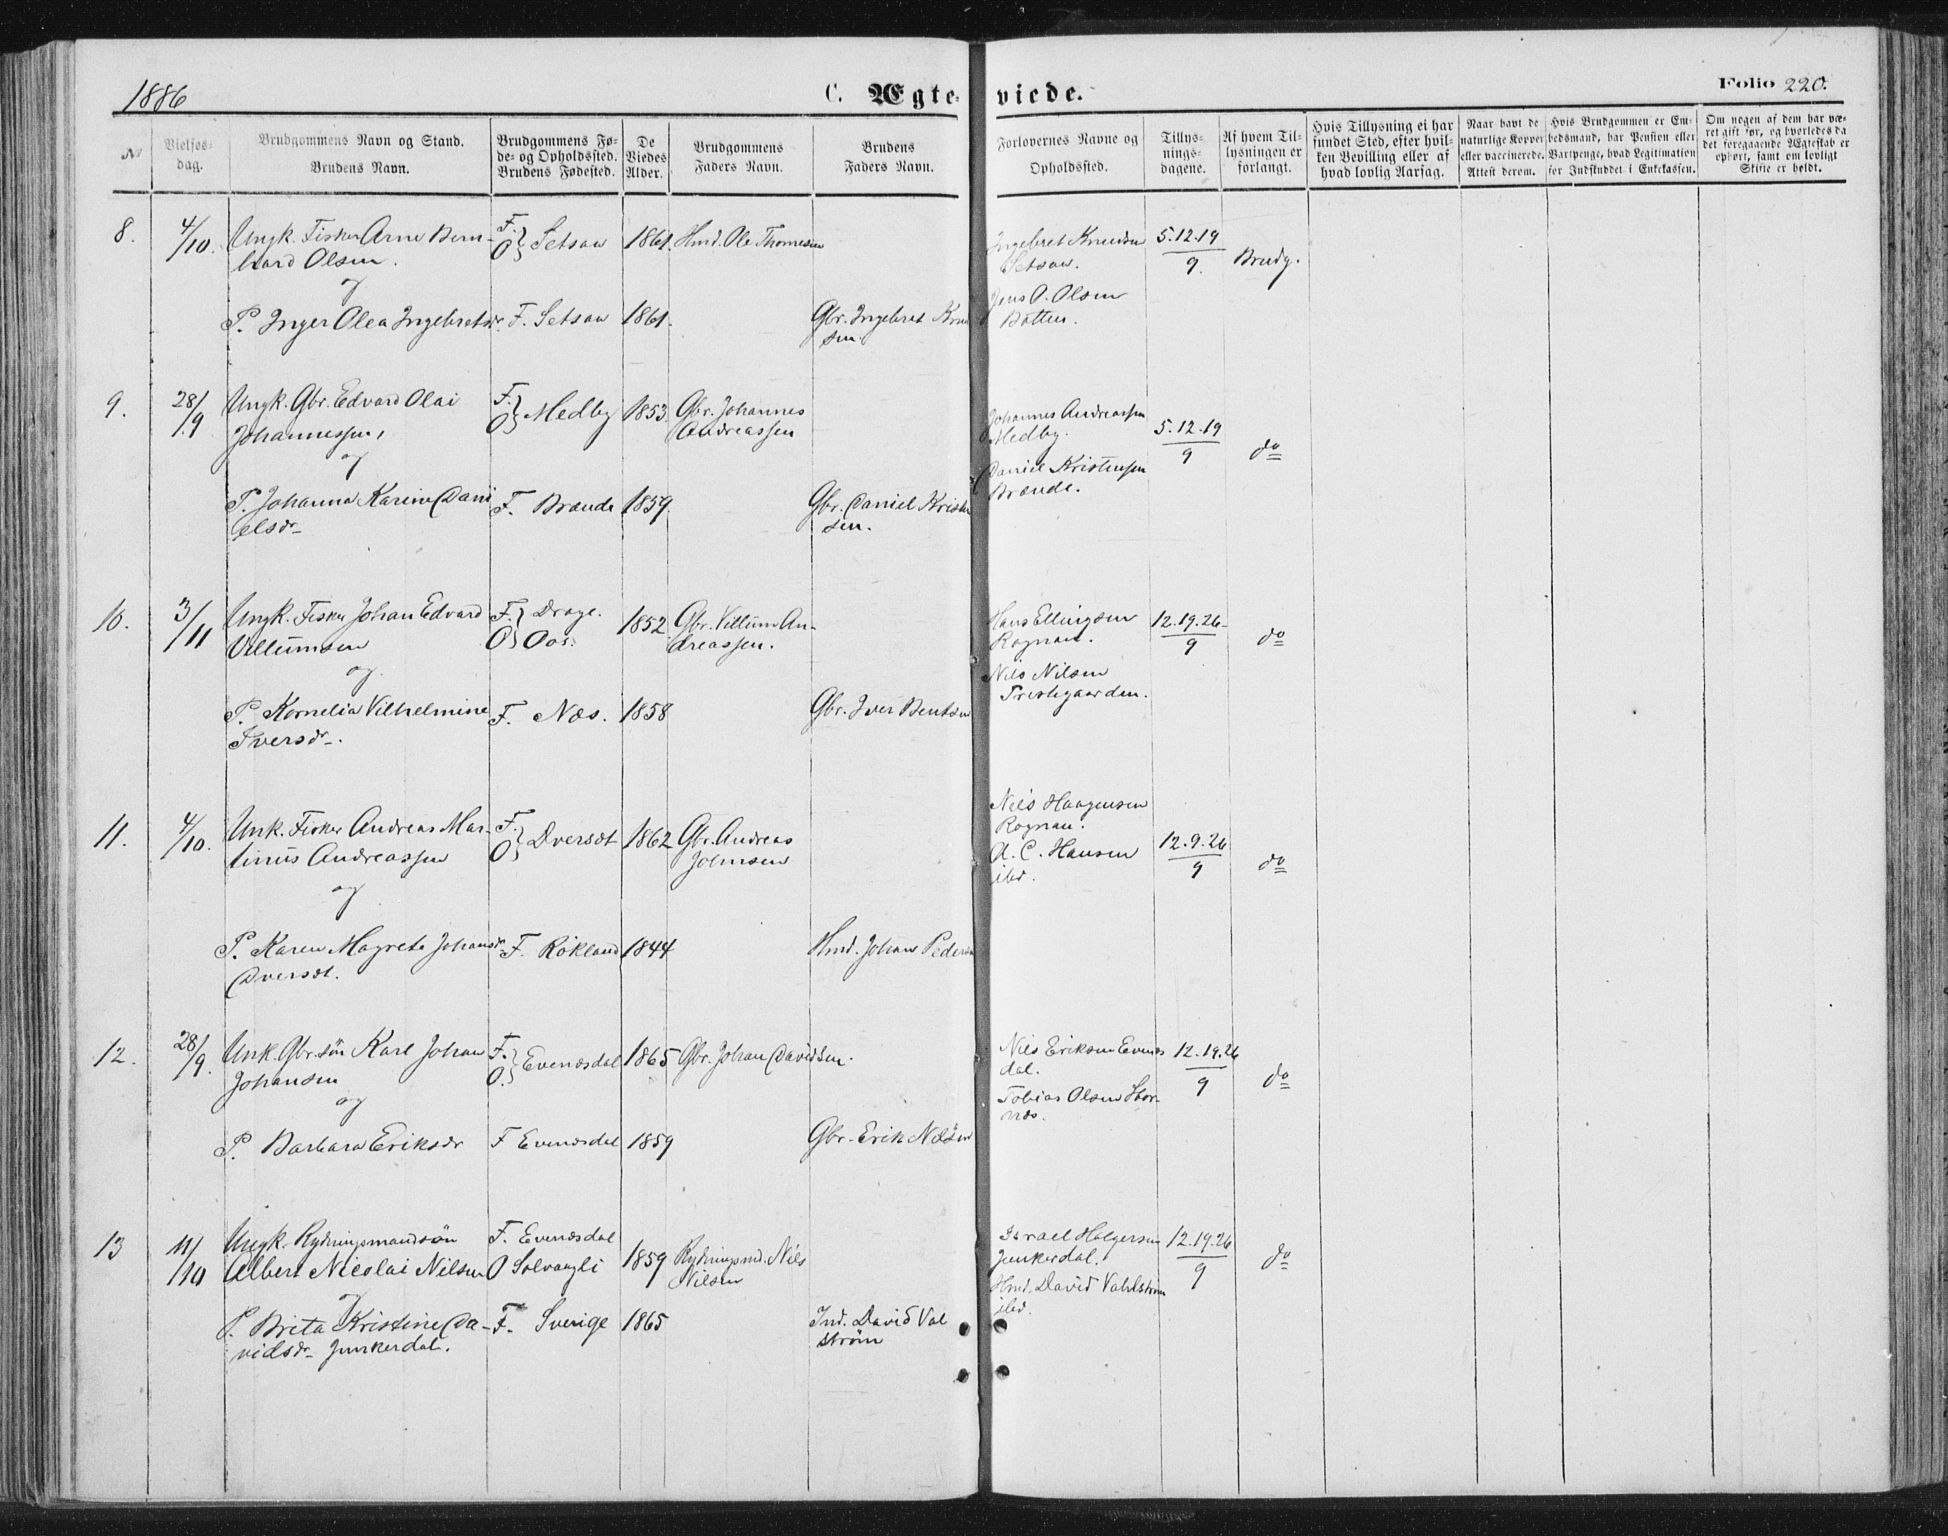 1886
C. Ægte-
viede.
Folio 220.
No
Vielses-
dag.
Brudgommens Navn og Stand.
Brudens Navn.
Brudgommens Fø-
de- og Opholdssted.
Brudens Fødested.
De
Viedes
Alder.
Brudgommens
Faders Navn.
Brudens
Faders Navn.
Forlovernes Navne og
Opholdssted.
Tillys-
nings-
dagene.
Af hvem Til-
lysningen er
forlangt.
Hvis Tillysning ei har
fundet Sted, efter hvil-
ken Bevilling eller af
hvad lovlig Aarsag.
Naar havt de
naturlige Kopper
eller vaccinerede.
Attest derom.
Hvis Brudgommen er Em-
bedsmand, har Pension eller
Vartpenge, hvad Legitimation
for Indskuddet i Enkekassen.
Om nogen af dem har væ-
ret gift før, og hvorledes da
det foregaaende Ægteskab er
ophørt, samt om lovligt
Skifte er holdt.
8.
4/10.
Ungk. Fisker Arne Bern-
hard Olsen.
og
P. Inger Olea Ingebretsdr.
F.
O } Setsaa
F. Setsaa
1861.
1861.
Hmd. Ole Thomesen
Gbr. Ingebret Knud
sen.
Ingebret Knudsen
Setsaa.
Jens O. Olsen
Botten.
5.12.19
9.
Brudg.
9.
28/9
Ungk. Gbr. Edvard Olai
Johannessen,
og
P. Johanna Karine Dani
elsdr
F.
O } Medby
F. Brænde
1853.
1859.
Gbr. Johannes
Andreassen
Gbr. Daniel Kristen
sen.
Johannes Andreassen
Medby.
Daniel Kristensen
Brænde.
5.12.19
9
do
10.
3/11
Ungk. Fisker Johan Edvard
Villumsen
og
P. Kornelia Vilhelmine
Iversdr.
F. } Drage.
O } Oos.
F. Næs.
1852
1858
Gbr. Villum An-
dreassen.
Gbr. Iver Bentsen
Hans Ellingsen
Rognan.
Nils Nilsen
Prestegaarden.
12.19.26
9
do
11.
4/10.
Unk. Fisker Andreas Mar-
tinus Andreassen
og
P. Karen Magrete Johansdr
Dversdt.
F.
O } Dversdt
F. Rökland
1862
1844
Gbr. Andreas
Johnsen
Hmd. Johan Pedersen
Nils Haagensen
Rognan.
A. C. Hansen
ibd.
12.9.26
9
do
12.
28/9.
Unk. Gbr. sön Karl Johan
Johansen
og
P. Barbara Eriksdr
F.
O. } Evenesdal
F Evenesdal
1865
1859
Gbr. Johan Davidsen.
Gbr. Erik Nilsen
Nils Eriksen Evenes
dal.
Tobias Olsen Stor-
næs.
12.19.26
9
do
13
11/10
Ungk. Rydningsmandsön
Albert Nicolai Nilsen
og
P. Brita Kristine Da-
vidsdr Junkerdal.
F. Evenesdal
O Solvaagli
F. Sverige
1859
1865
Rydningsmd. Nils
Nilsen
Ind. David Val
strøm
Israel Holgersen
Junkerdal.
Hmd. David Vahlstrøm
ibd.
12.19.26
9
do